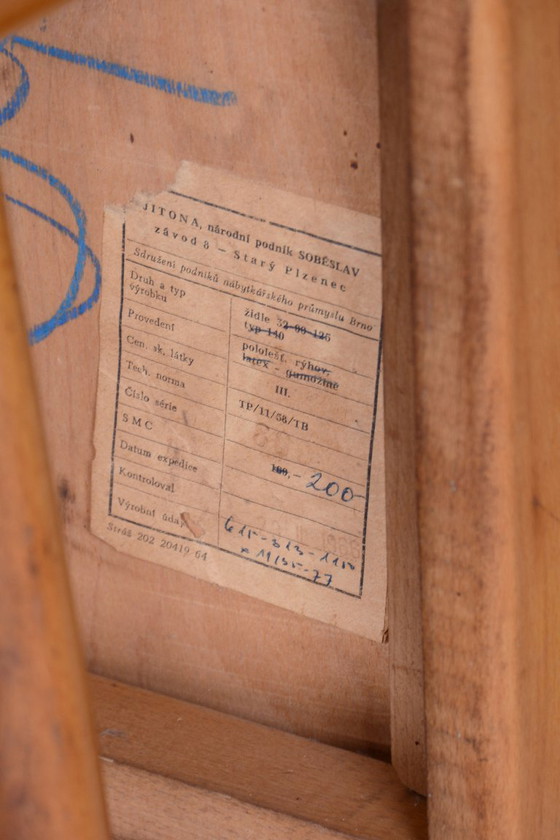 JITONA, národní podnik SOBĚSLAV
závod 6 – Starý Plzenec
Sdružení podniků nábytkářského průmyslu Brno
Druh a typ výrobku
židle 32-60-126
typ 140
Provedení
pololešt. rýhov.
latex - gumožíně
Cen. sk. látky
III.
Tech. norma
TP/11/58/TB
Číslo série
SMC
169,- 200-
Datum expedice
Kontroloval
Výrobní údaj
Stráž 202 20419 64